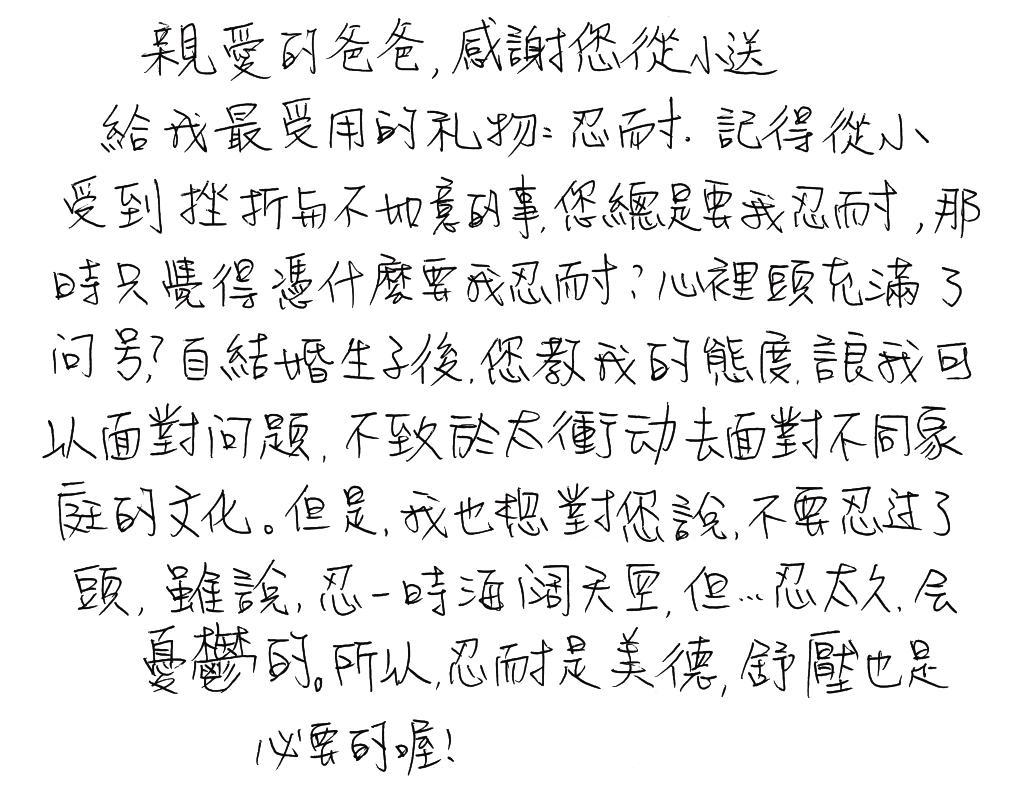 親愛的爸爸,感謝您從小送
給我最受用的礼物:忍耐.記得從小
受到挫折与不如意的事,您總是要我忍耐,那
時只覺得憑什麼要我忍耐?心裡頭充滿了
问号?自結婚生子後,您教我的態度,讓我可
以面對问題,不致於太衝动去面對不同家
庭的文化。但是,我也想對您說,不要忍过了
頭,雖說,忍一時海阔天空,但...忍太久,会
憂鬱的。所以,忍耐是美德,舒壓也是
必要的喔!